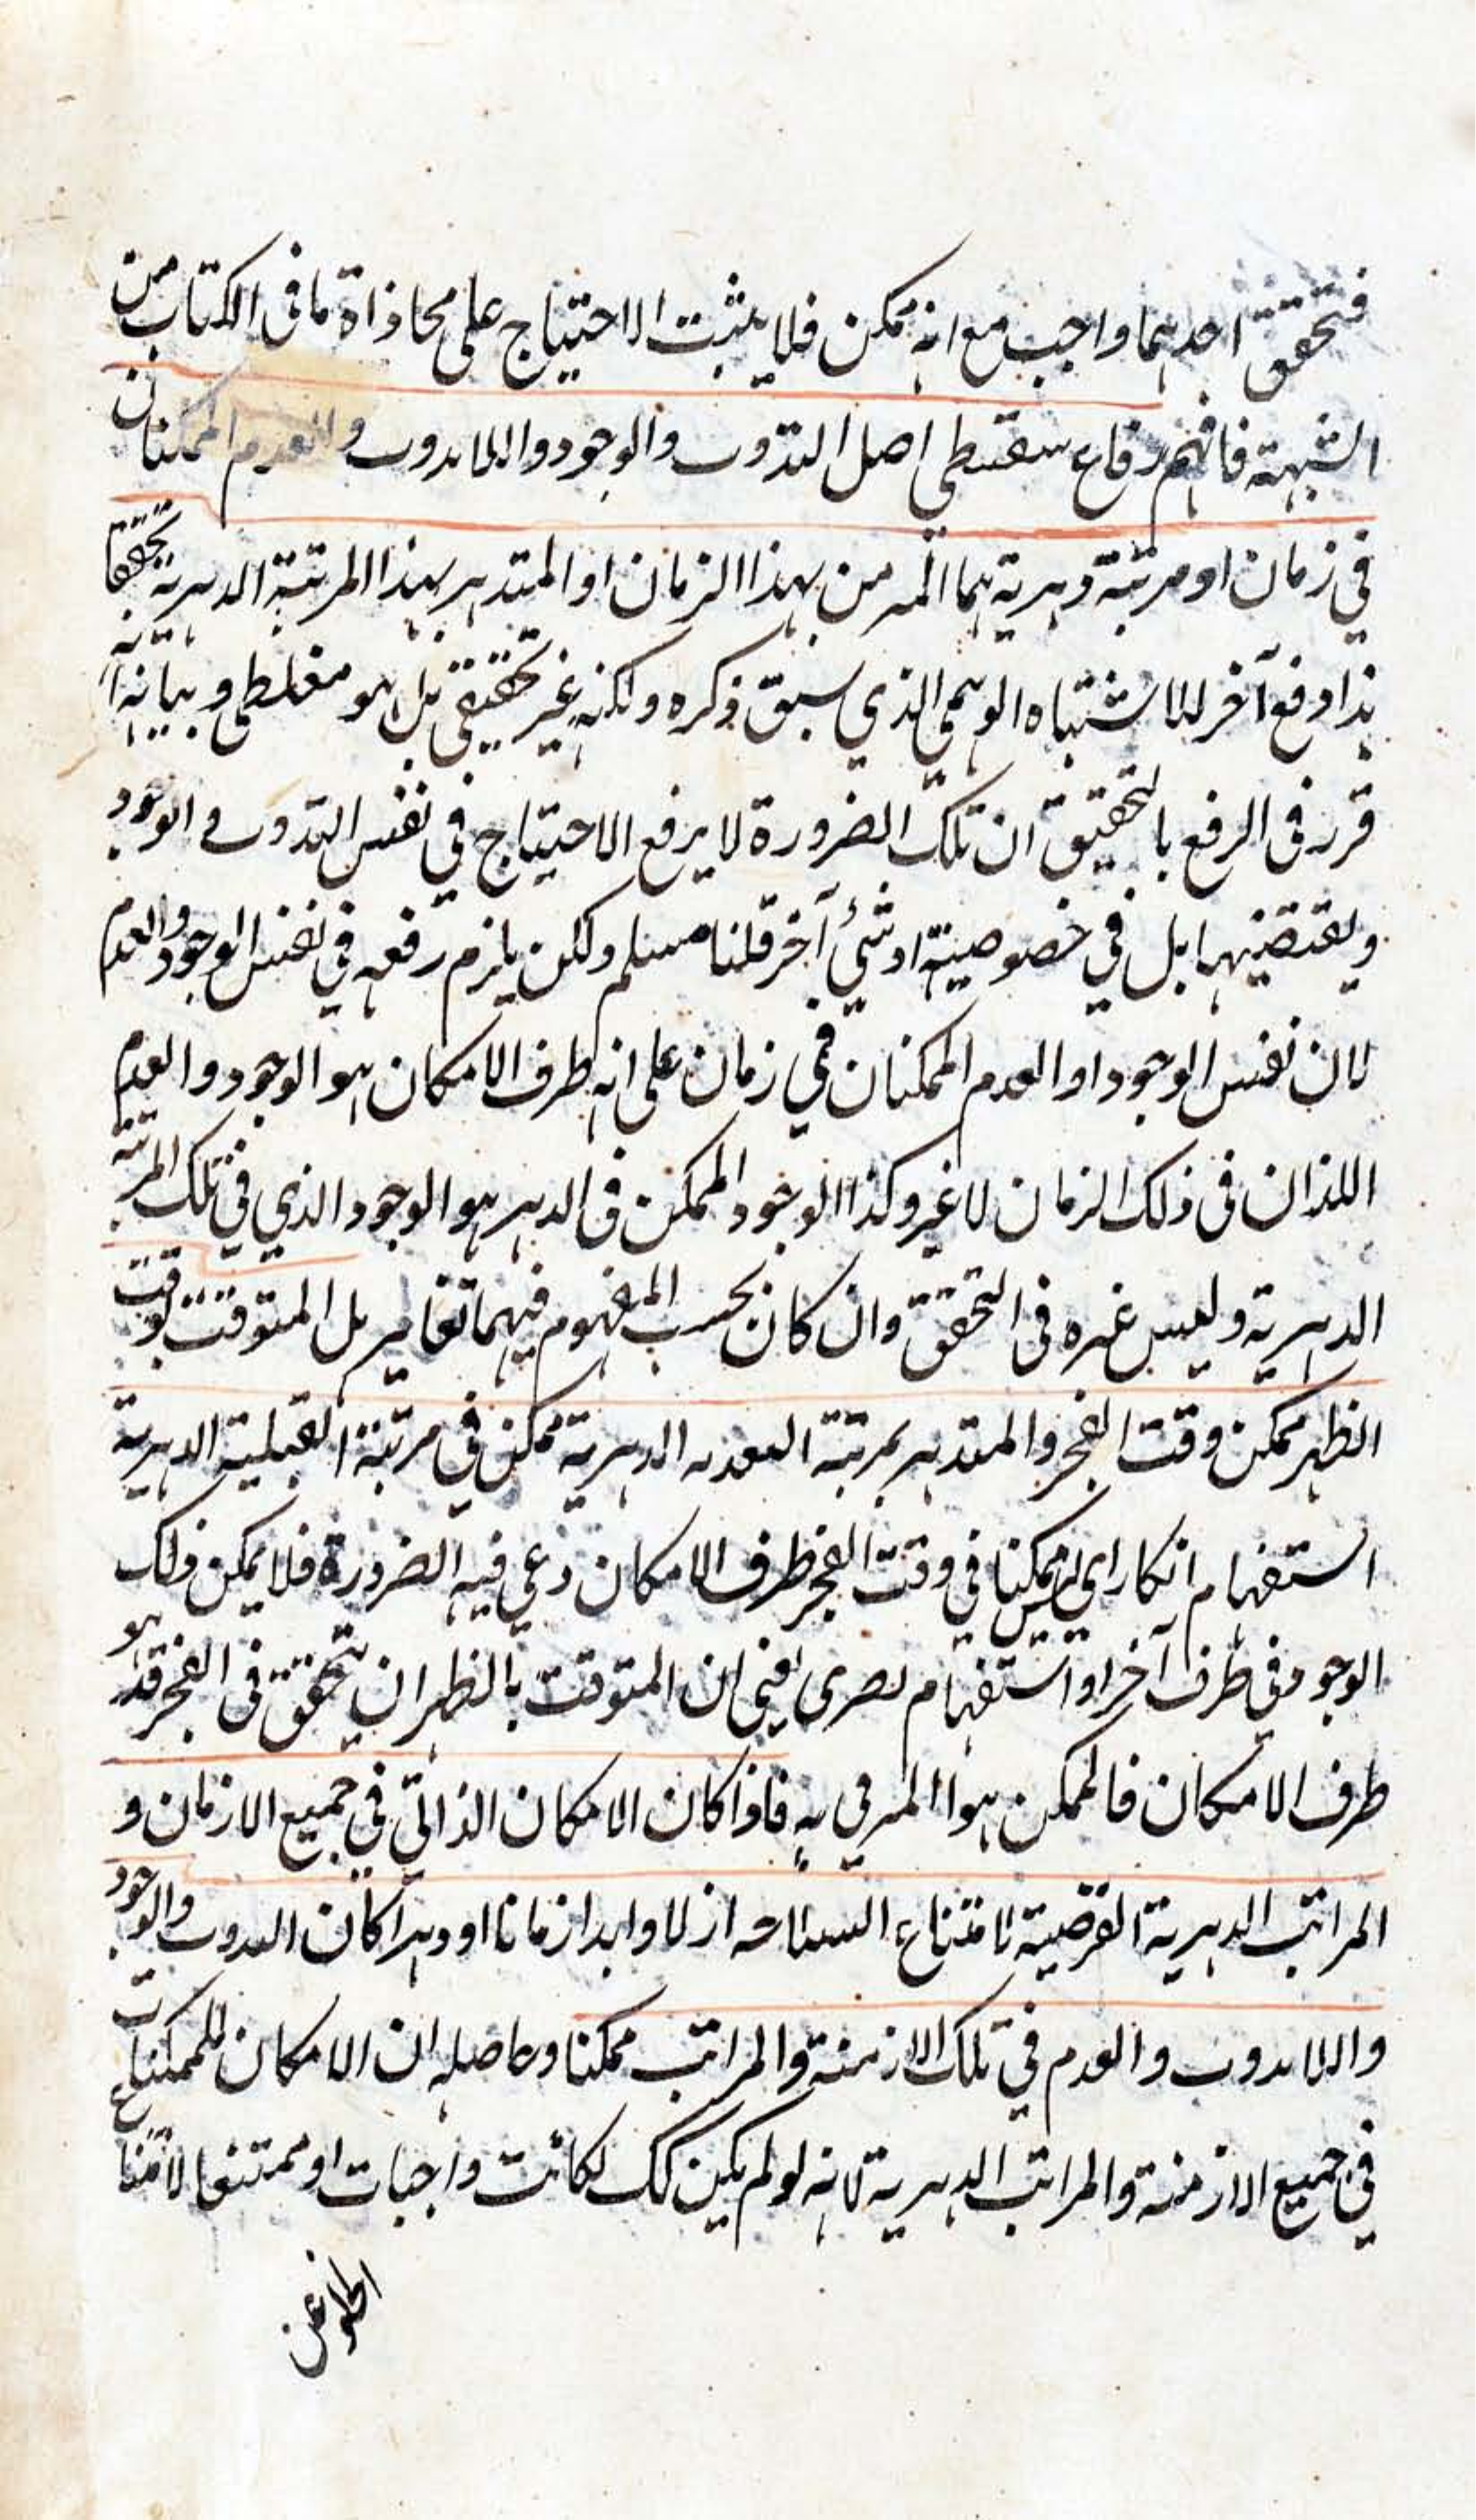 فتحقق احدهما واجب مع انه ممكن فلا يثبت الاحتياج على محاذاة ما فى الكتاب من
الشبهة فافهم دفاع سقسطي اصل التذوت والوجود واللا تذوت والعدم الممكنان
في زمان او مرتبة دهرية هما المزمن بهذا الزمان او المتدهر بهذا المرتبة الدهرية تحققا
هذا دفع آخر للاشتباه الوهمي الذي سبق ذكره ولكنه غير تحقيقي بل هو مغلطي وبيانه انه
قرر فى الرفع بالتحقيق ان تلك الضرورة لا يرفع الاحتياج في نفس التذوت والوجود
ونقيضيهما بل في خصوصية او شئ آخر قلنا مسلم ولكن يلزم رفعه في نفس الوجود والعدم
لان نفس الوجود او العدم الممكنان في زمان على انه طرف الامكان هو الوجود والعدم
اللذان فى ذلك الزمان لا غير وكذا الوجود الممكن فى الدهر هو الوجود الذي في تلك المرتبة
الدهرية وليس غيره فى التحقق وان كان بحسب المفهوم فيهما تغاير بل المتوقت بوقت
الظهر ممكن وقت الفجر والمتدهر بمرتبة البعديه الدهرية ممكن في مرتبة القبلية الدهرية
استفهام انكار اي ليس ممكنا في وقت الفجر طرف الامكان دعي فيه الضرورة فلا يمكن ذلك
الوجود في طرف آخر او استفهام يعني ان المتوقت بالظهر ان يتحقق فى الفجر فهو
طرف الامكان فالممكن هو المرمي به فاذا كان الامكان الذاتي في جميع الازمان و
المراتب الدهرية الفرضية لامتناع ازلا وابدا زمانا او دهرا كان التذوت والوجود
واللا تذوت والعدم في تلك الازمنة والمراتب ممكنا وحاصله ان الامكان للممكنات
في جميع الازمنة والمراتب الدهرية لانه لو لم يكن كك لكانت واجبات او ممتنعا لامتناع